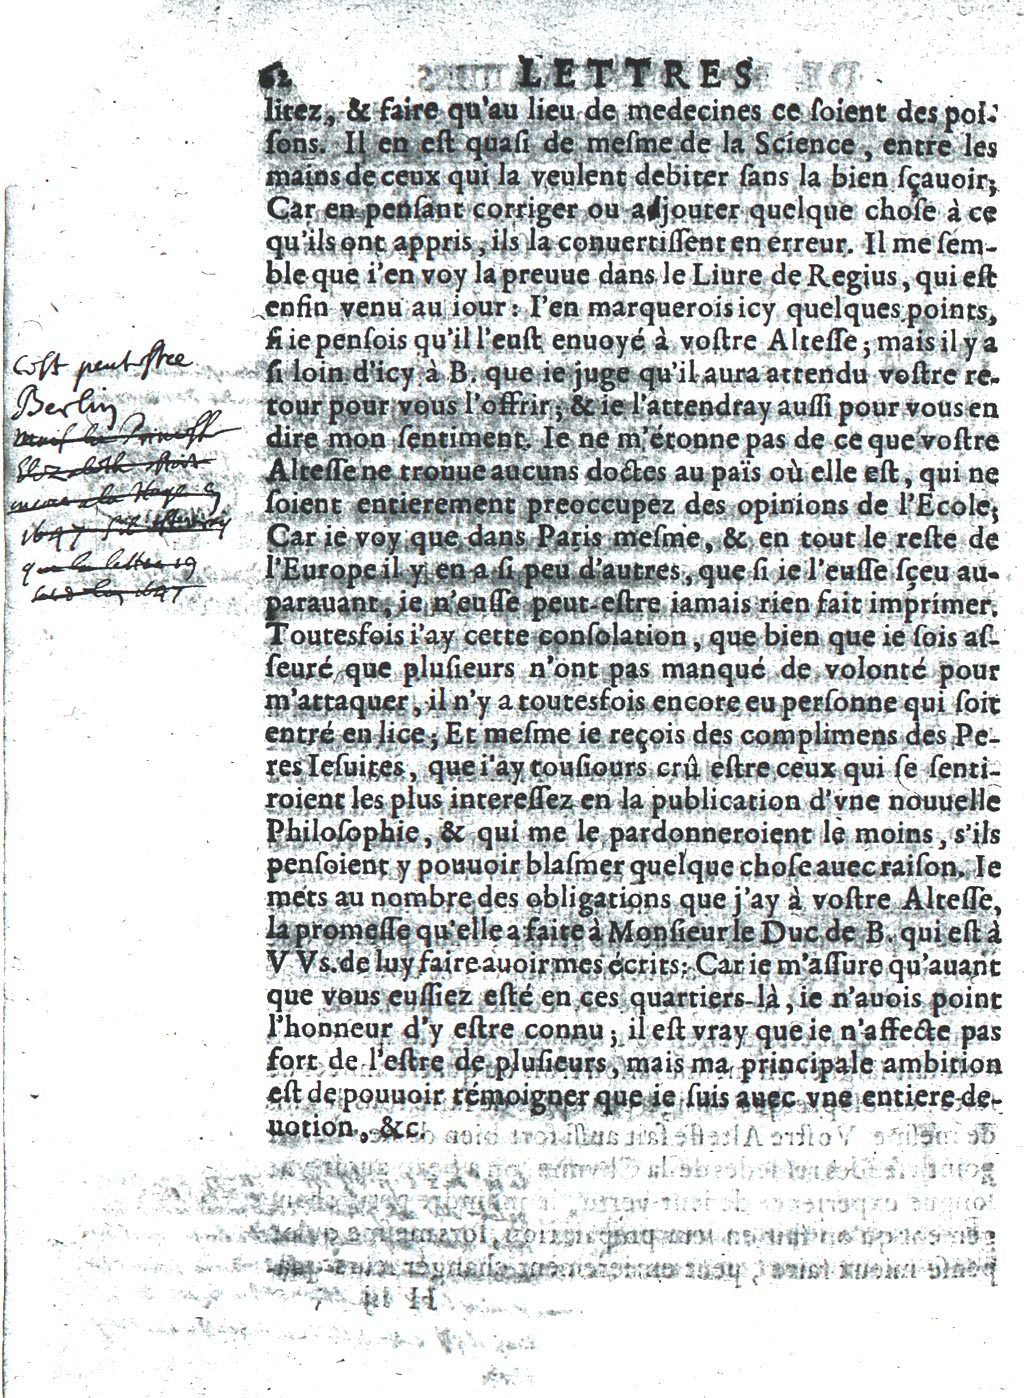 62 LETTRES
litez, & faire qu'au lieu de medecines ce ſoient des poi-
ſons. Il en eſt quaſi de meſme de la Science, entre les
mains de ceux qui la veulent debiter ſans la bien ſçauoir;
Car en penſant corriger ou adjouter quelque choſe à ce
qu'ils ont appris, ils la conuertiſſent en erreur. Il me ſem-
ble que i'en voy la preuue dans le Liure de Regius, qui eſt
enfin venu au iour: I'en marquerois icy quelques points,
ſi ie penſois qu'il l'euſt enuoyé à voſtre Alteſſe; mais il y a
ſi loin d'icy à B. que ie juge qu'il aura attendu voſtre re-
tour pour vous l'offrir; & ie l'attendray auſſi pour vous en
dire mon ſentiment. Ie ne m'étonne pas de ce que voſtre
Alteſſe ne trouue aucuns doctes au païs où elle eſt, qui ne
ſoient entierement preoccupez des opinions de l'Ecole;
Car ie voy que dans Paris meſme, & en tout le reſte de
l'Europe il y en a ſi peu d'autres, que ſi ie l'euſſe ſçeu au-
parauant, ie n'euſſe peut-eſtre iamais rien fait imprimer.
Toutesfois i'ay cette conſolation, que bien que ie ſois aſ-
ſeuré que pluſieurs n'ont pas manqué de volonté pour
m'attaquer, il n'y a toutesfois encore eu perſonne qui ſoit
entré en lice; Et meſme ie reçois des complimens des Pe-
res Ieſuites, que i'ay touſiours crû eſtre ceux qui ſe ſenti-
roient les plus intereſſez en la publication d'vne nouuelle
Philoſophie, & qui me le pardonneroient le moins, s'ils
penſoient y pouuoir blaſmer quelque choſe auec raiſon. Ie
mets au nombre des obligations que j'ay à voſtre Alteſſe,
la promeſſe qu'elle a faite à Monſieur le Duc de B. qui eſt à
V Vs. de luy faire auoir mes écrits: Car ie m'aſſure qu'auant
que vous euſſiez eſté en ces quartiers-là, ie n'auois point
l'honneur d'y eſtre connu; il eſt vray que ie n'affecte pas
fort de l'eſtre de pluſieurs, mais ma principale ambition
eſt de pouuoir témoigner que ie ſuis auec vne entiere de-
uotion, &c.
cest peut estre
Berlin
1647
que la lettre 19
1647